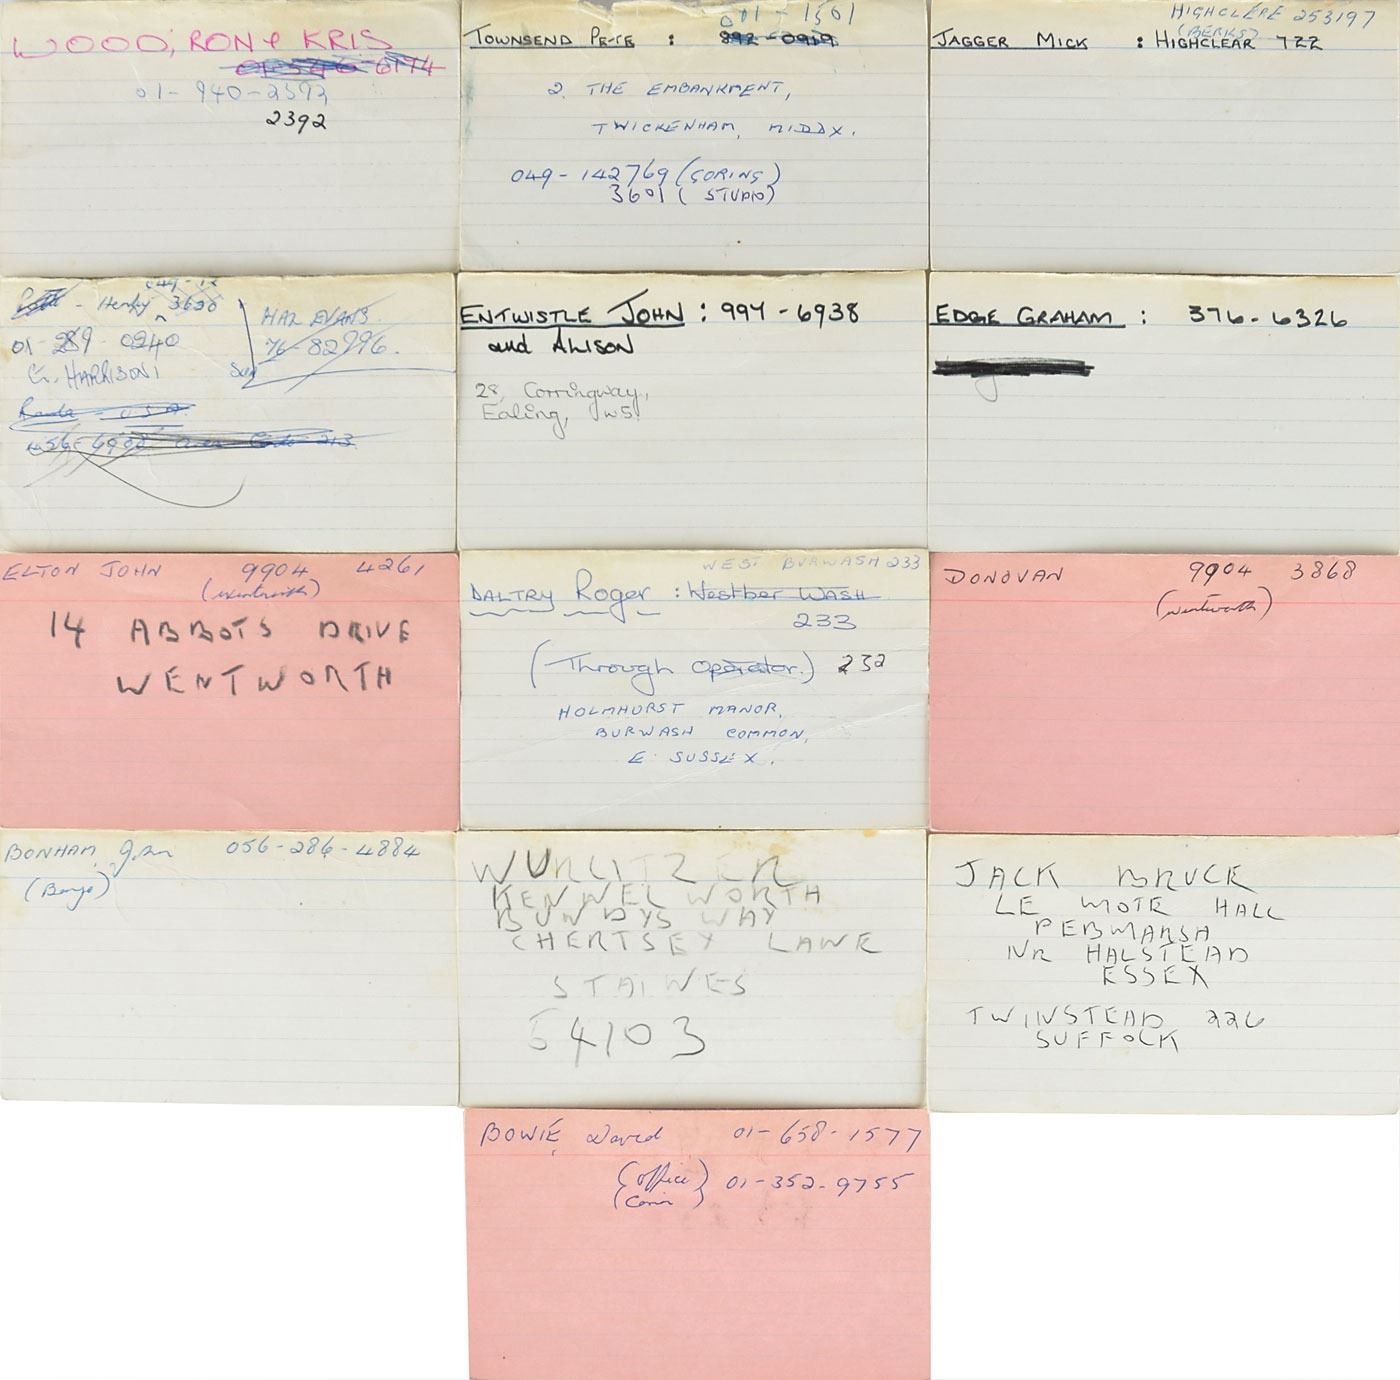 WOOD, RON & KRIS
6174
01-940-2592
2392
TOWNSEND PETE : 892-0919
2. THE EMBANKMENT,
TWICKENHAM, MIDDX.
049-142769 (GORING)
3601 (STUDIO)
HIGHCLERE 253197
(BERKS)
JAGGER MICK : HIGHCLEAR 722
Henley 3620
01-289-0240
G. HARRISON
MAL EVANS.
76-82296.
656-6900 Area Code 213
ENTWISTLE JOHN : 997-6938
and ALISON
28, Corringway,
Ealing, W5.
EDGE GRAHAM : 376-6326
ELTON JOHN 9904 4261
(Wentworth)
14 ABBOTS DRIVE
WENTWORTH
WEST BURWASH 233
DALTRY Roger : Westber WASH
233
(Through Operator.) 232
HOLMHURST MANOR,
BURWASH COMMON,
E. SUSSEX.
DONOVAN 9904 3868
(Wentworth)
BONHAM, John 056-286-4884
WURLITZER
KENNELWORTH
BUNDYS WAY
CHERTSEY LANE
STAINES
54103
JACK BRUCE
LE MOTE HALL
PEBMARSH
NR HALSTEAD
ESSEX
TWINSTEAD 226
SUFFOCK
BOWIE, David 01-658-1577
(office) 01-352-9755